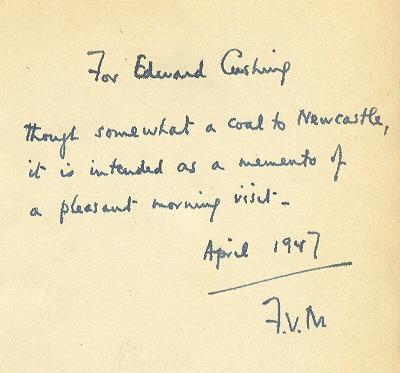 For Edward Cushing
though somewhat a coal to Newcastle,
it is intended as a memento of
a pleasant morning visit -
April 1947
F.V.M